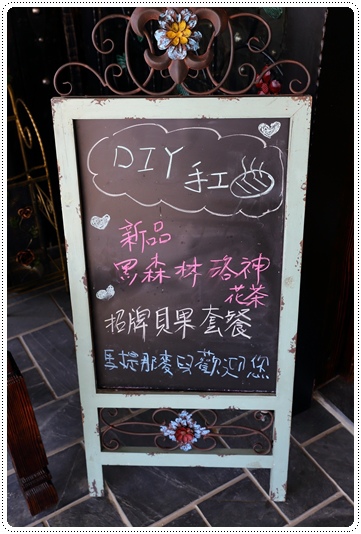 DIY 手工
新品
黑森林洛神
花茶
招牌貝果套餐
馬提那麥田歡迎您